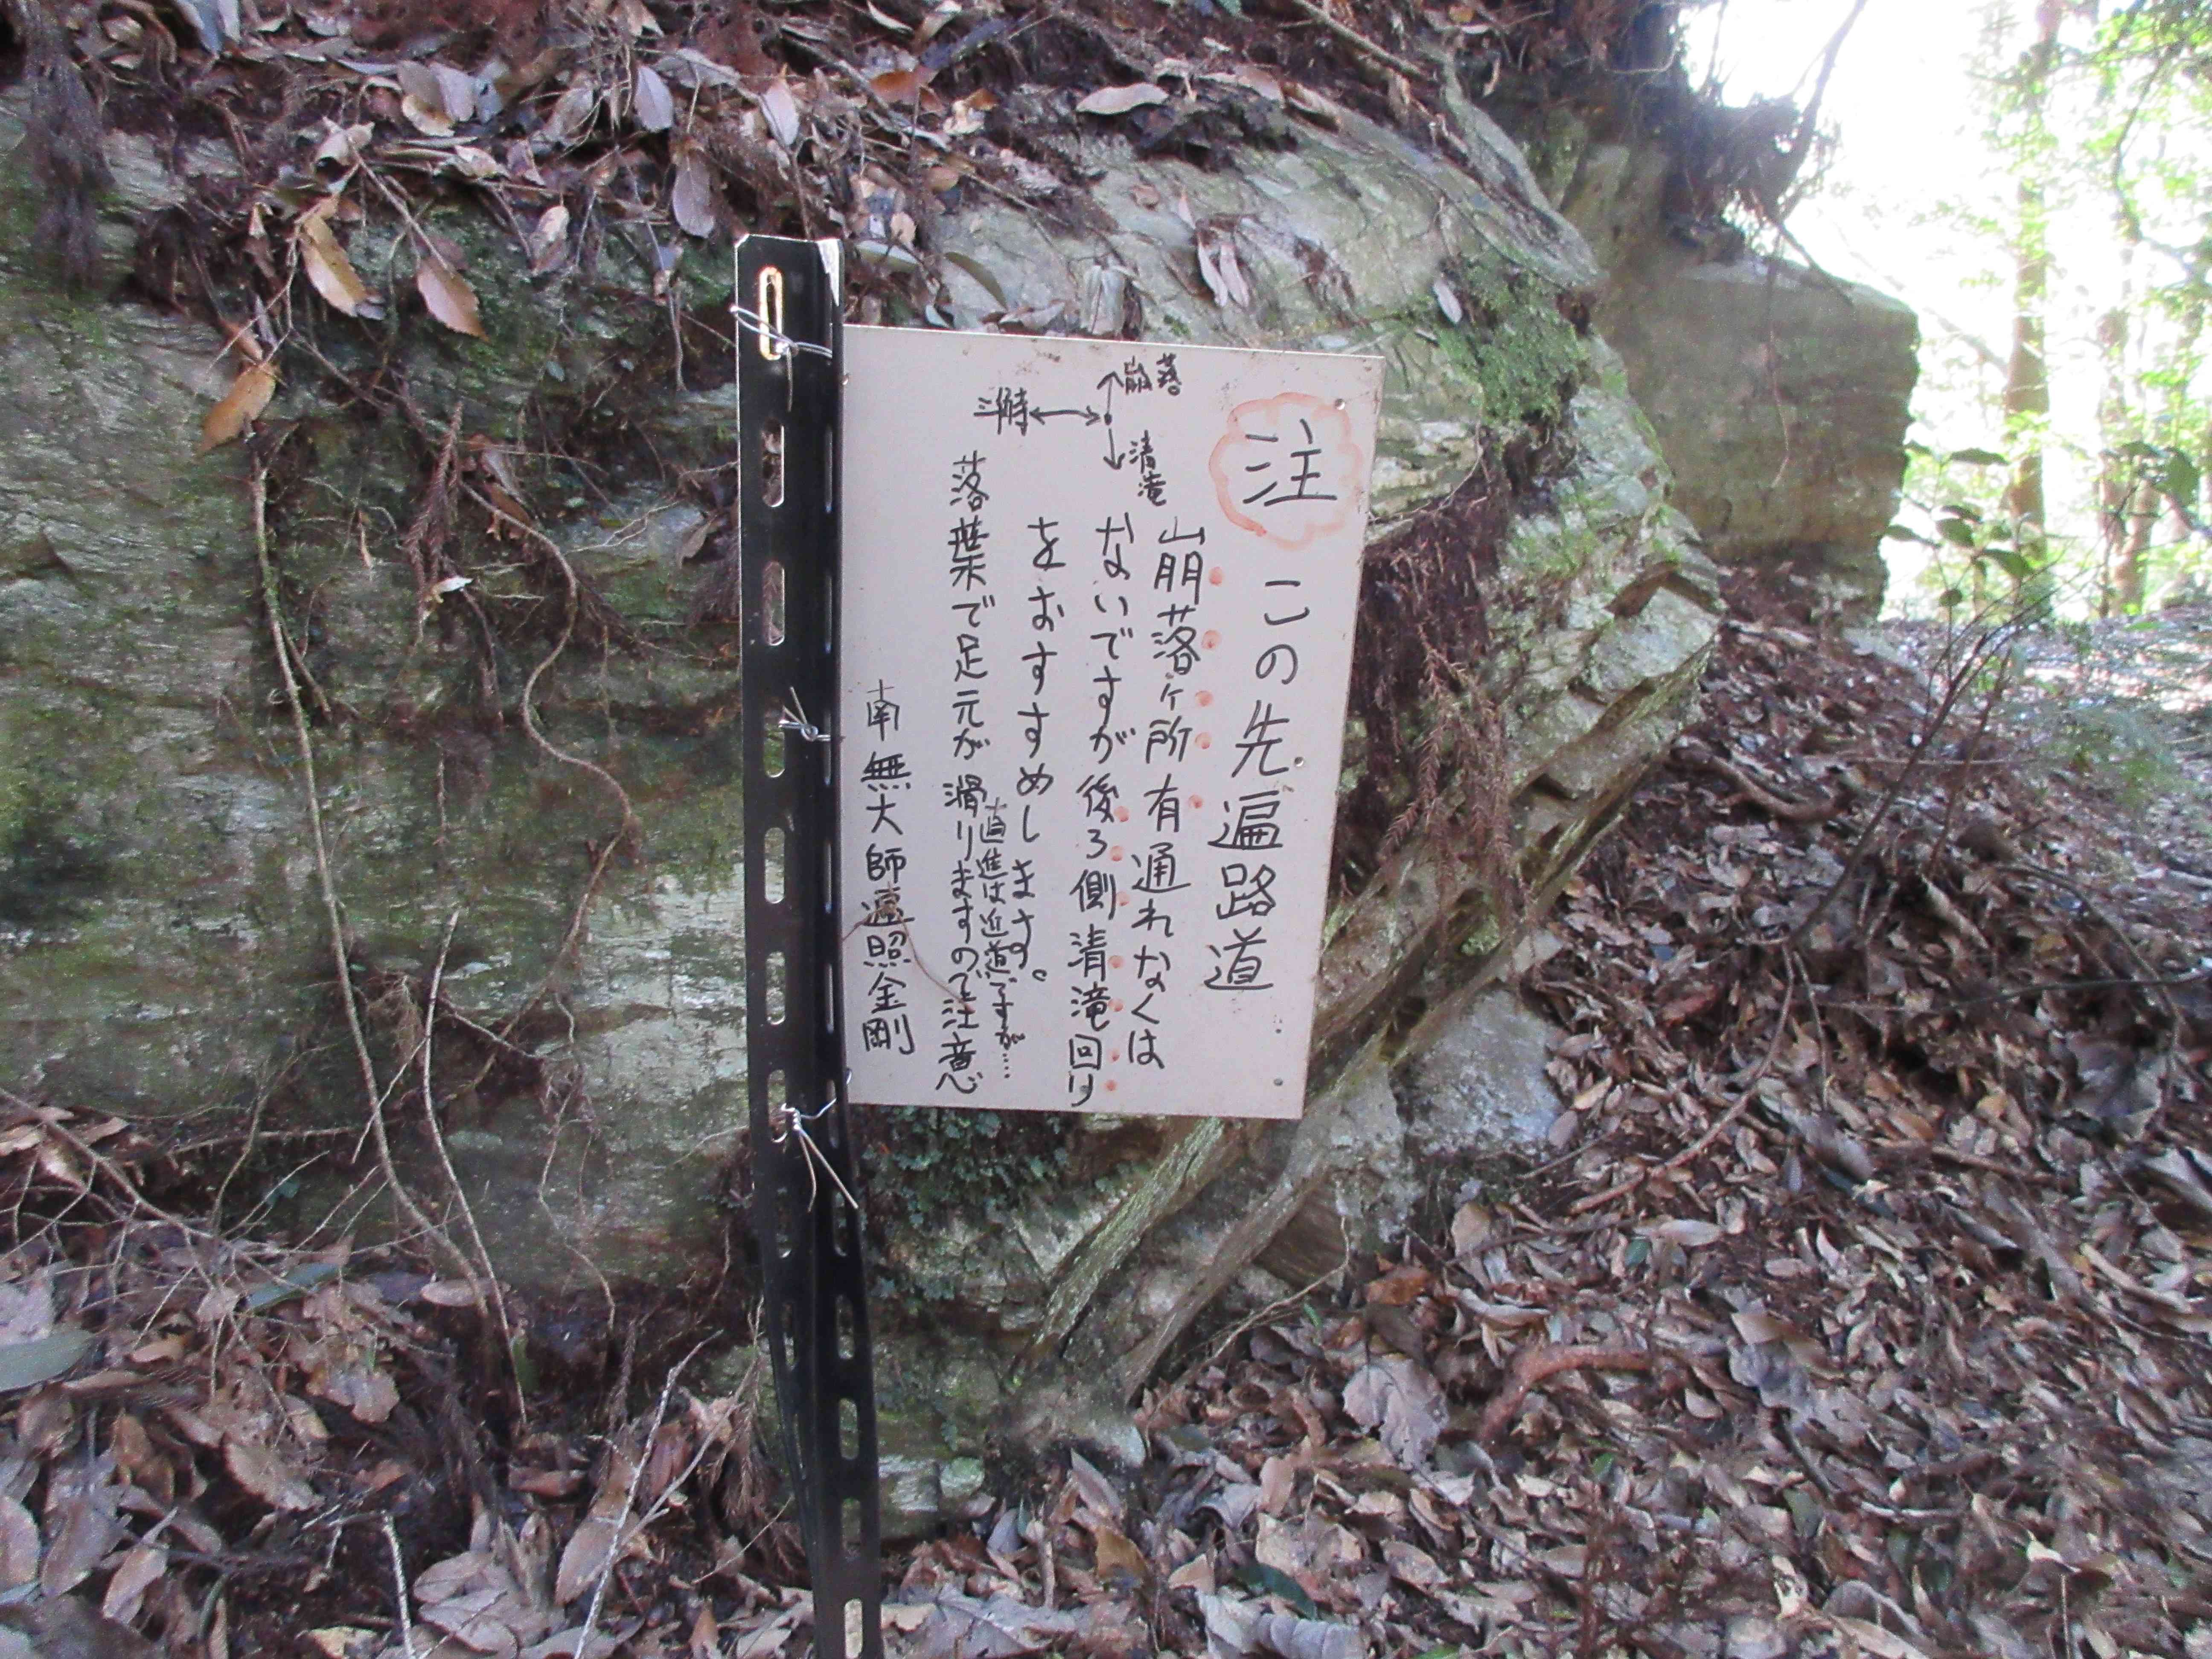 注 この先遍路道
崩落ヶ所有通れなくは
ないですが後ろ側清滝回り
をおすすめします。
直進は近道ですが……
落葉で足元が滑りますので注意
南無大師遍照金剛
崩落
清滝